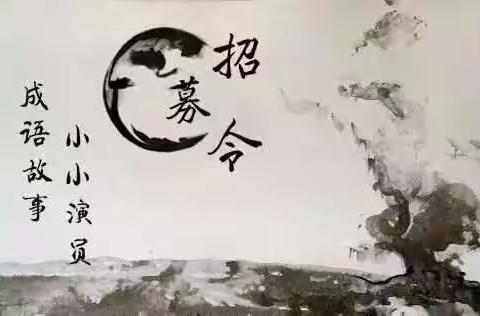 成语故事
小小演员
招募令